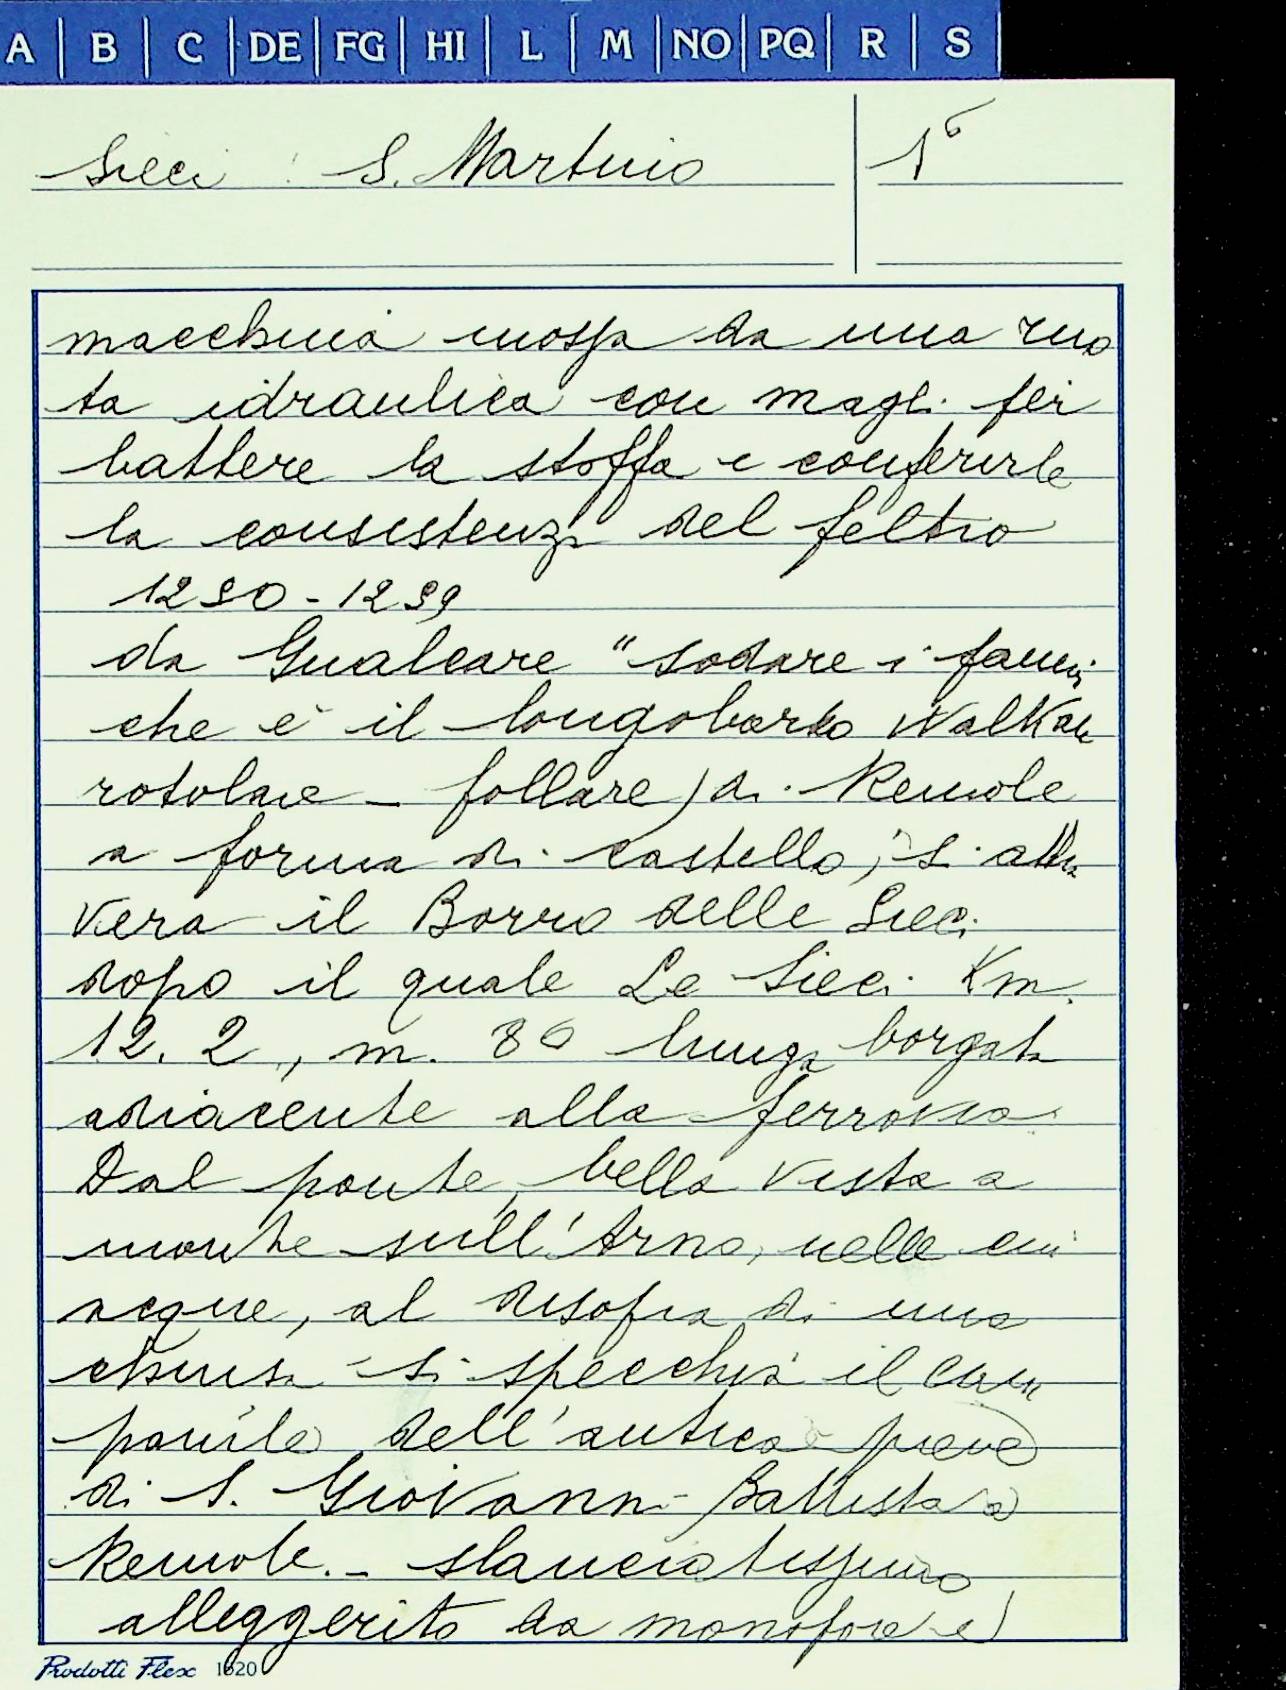 A B C DE FG HI L M NO PQ R S
Sieci S. Martino 1°
macchina mossa da una ruo
ta idraulica con magli per
battere la stoffa e conferirle
la consistenza del feltro
1290-1299
da Gualcare "sodare i panni
che è il longobardo Walkan
rotolare - follare) di Remole
a forma di castello, si attra
versa il Borro delle Sieci
dopo il quale Le Sieci Km.
12.2, m. 86 lunga borgata
adiacente alla ferrovia.
Dal ponte, bella vista a
monte sull'Arno, nelle cui
acque, al disopra di una
chiusa si specchia il cam
panile dell'antica pieve
di S. Giovanni Battista a
Remole. - slanciatissimo
alleggerito da monofore e
Prodotti Flex 1620